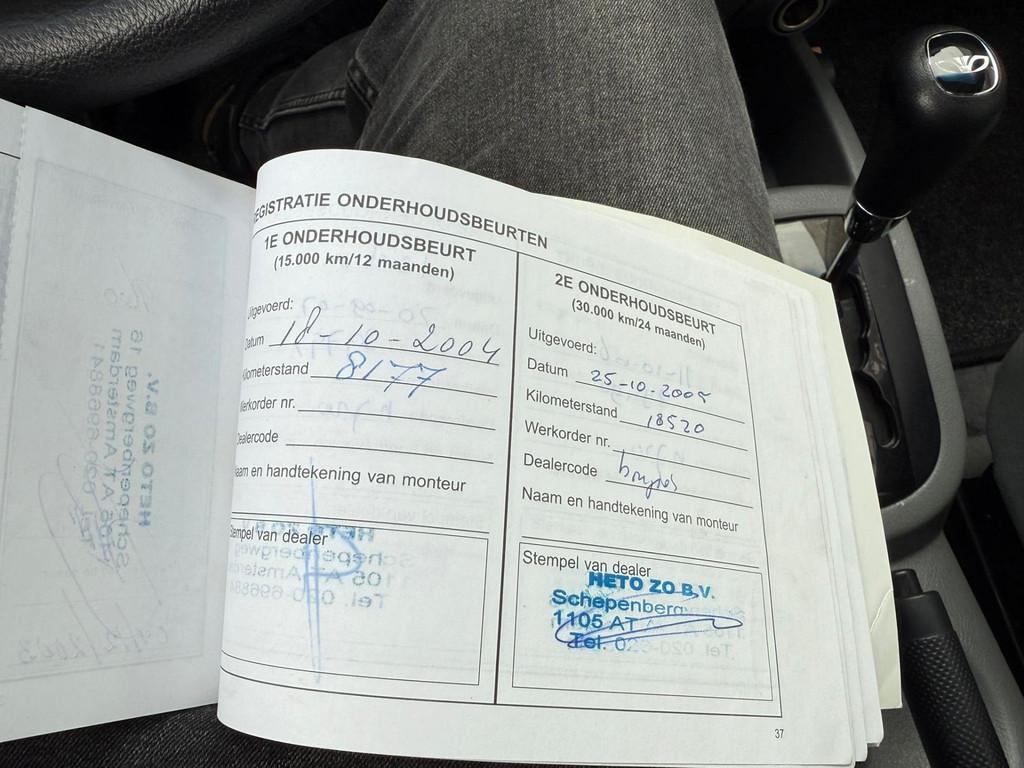 REGISTRATIE ONDERHOUDSBEURTEN
1E ONDERHOUDSBEURT
(15.000 km/12 maanden)
Uitgevoerd:
Datum 18-10-2004
Kilometerstand 8177
Werkorder nr.
Dealercode
Naam en handtekening van monteur
Stempel van dealer
2E ONDERHOUDSBEURT
(30.000 km/24 maanden)
Uitgevoerd:
Datum 25-10-2005
Kilometerstand 18520
Werkorder nr.
Dealercode
Naam en handtekening van monteur
Stempel van dealer
HETO ZO B.V.
Schepenberg
1105 AT
Tel. 020
37
HETO ZO B.V.
Schepenbergweg 16
1105 AT Amsterdam